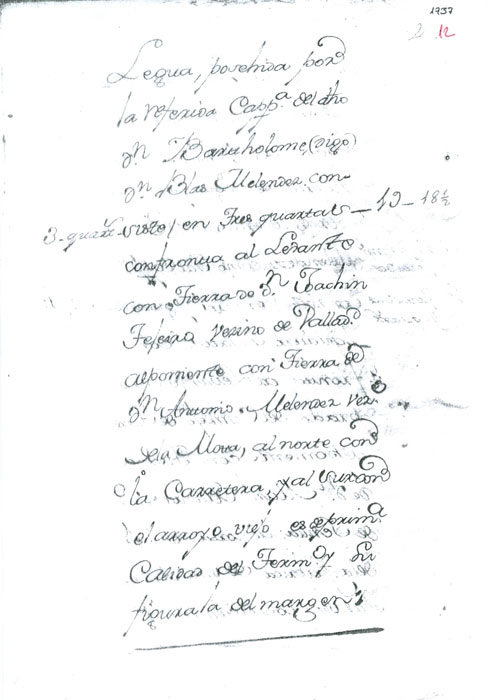 1737
2 12
Legua, poschida por
la referida Capp.ª del dho
Dn Bartholome, (digo)
Dn Blas Melendez con-
3-quart.s siste) en tres quartals — 19 - 18 ½
confronta al Levante
con Tierra de Dn Joachin
Feleira Vezino de Vallad.
alponiente con Tierra de
Dn Antonio Melendez Vez.º
dela Mora, al norte con
la Carretera y al Sur con
el arroyo viejo es de prim.ª
Calidad del Term.º y su
figura la del margen